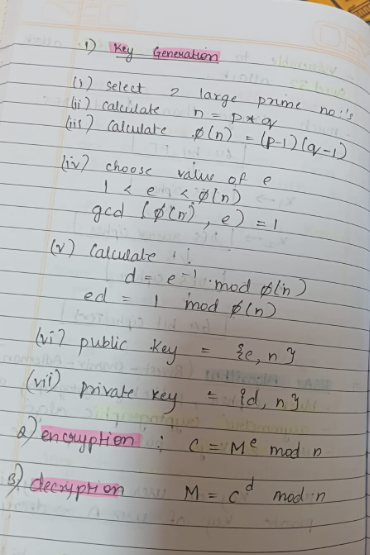 1) Key Generation
(i) select 2 large prime no:'s
(ii) calculate n = p * q
(iii) calculate ϕ(n) = (p-1)(q-1)
(iv) choose value of e
1 < e < ϕ(n)
gcd (ϕ(n), e) = 1
(v) calculate :
d = e⁻¹ mod ϕ(n)
ed = 1 mod ϕ(n)
(vi) public key = {e, n}
(vii) private key = {d, n}
2) encryption : C = Mᵉ mod n
3) decryption M = Cᵈ mod n